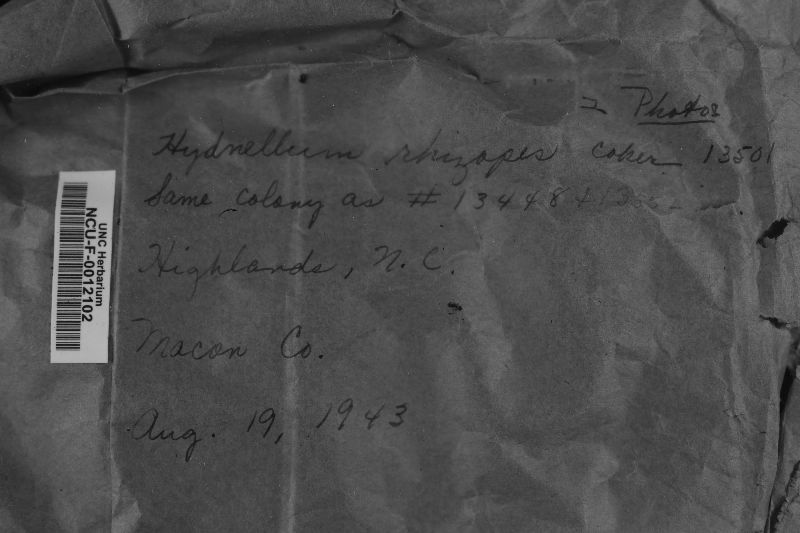 Photos
Hydnellum rhizopes Coker 13501
Same colony as # 13448 +
Highlands, N.C.
Macon Co.
Aug. 19, 1943
UNC Herbarium
NCU-F-0012102